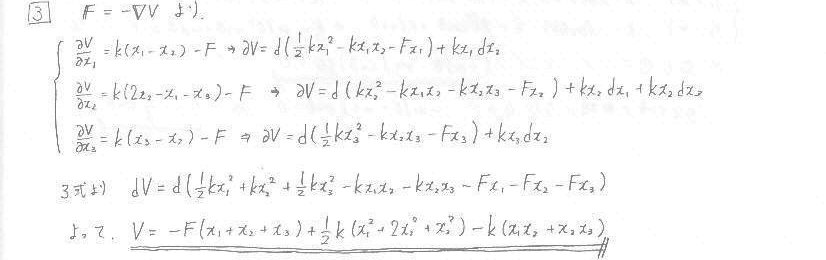 3 F = -∇V より、
∂V/∂x₁ = k(x₁ - x₂) - F → ∂V = d(½kx₁² - kx₁x₂ - Fx₁) + kx₁dx₂
∂V/∂x₂ = k(2x₂ - x₁ - x₃) - F → ∂V = d(kx₂² - kx₁x₂ - kx₂x₃ - Fx₂) + kx₂dx₁ + kx₂dx₃
∂V/∂x₃ = k(x₃ - x₂) - F ⇒ ∂V = d(½kx₃² - kx₂x₃ - Fx₃) + kx₃dx₂
3式より dV = d(½kx₁² + kx₂² + ½kx₃² - kx₁x₂ - kx₂x₃ - Fx₁ - Fx₂ - Fx₃)
よって、V = -F(x₁ + x₂ + x₃) + ½k(x₁² + 2x₂² + x₃²) - k(x₁x₂ + x₂x₃)